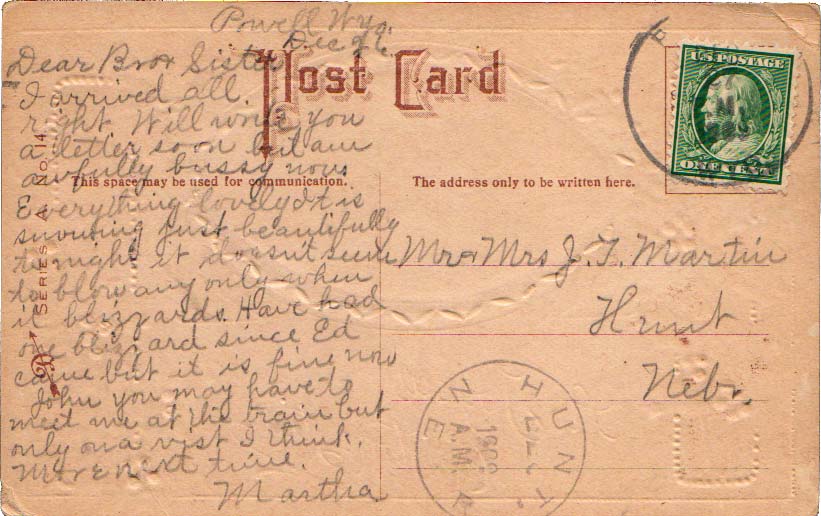 Powell Wyo.
Dec 26
Dear Bro & Sister
I arrived all
right Will write you
a letter soon but am
awfully bussy now
Everything lovely It is
snowing just beautifully
to night it doesn't seem
to blow any only when
it blizzards. Have had
one blizzard since Ed
came but it is fine now
John you may have to
meet me at the train but
only on a visit I think.
More next time.
Martha
Post Card
This space may be used for communication.
The address only to be written here.
SERIES A. No. 14
U.S. POSTAGE
ONE CENT
Mr & Mrs J. F. Martin
Hunt
Nebr.
HUNT
1909
A.M.
NE